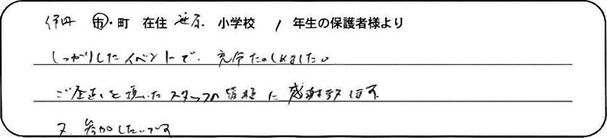 伊丹 市・町 在住 笹原 小学校 1 年生の保護者様より
しっかりしたイベントで、充分たのしめました。
ご尽力を頂いたスタッフの皆様に感謝致します。
又、参加したいです